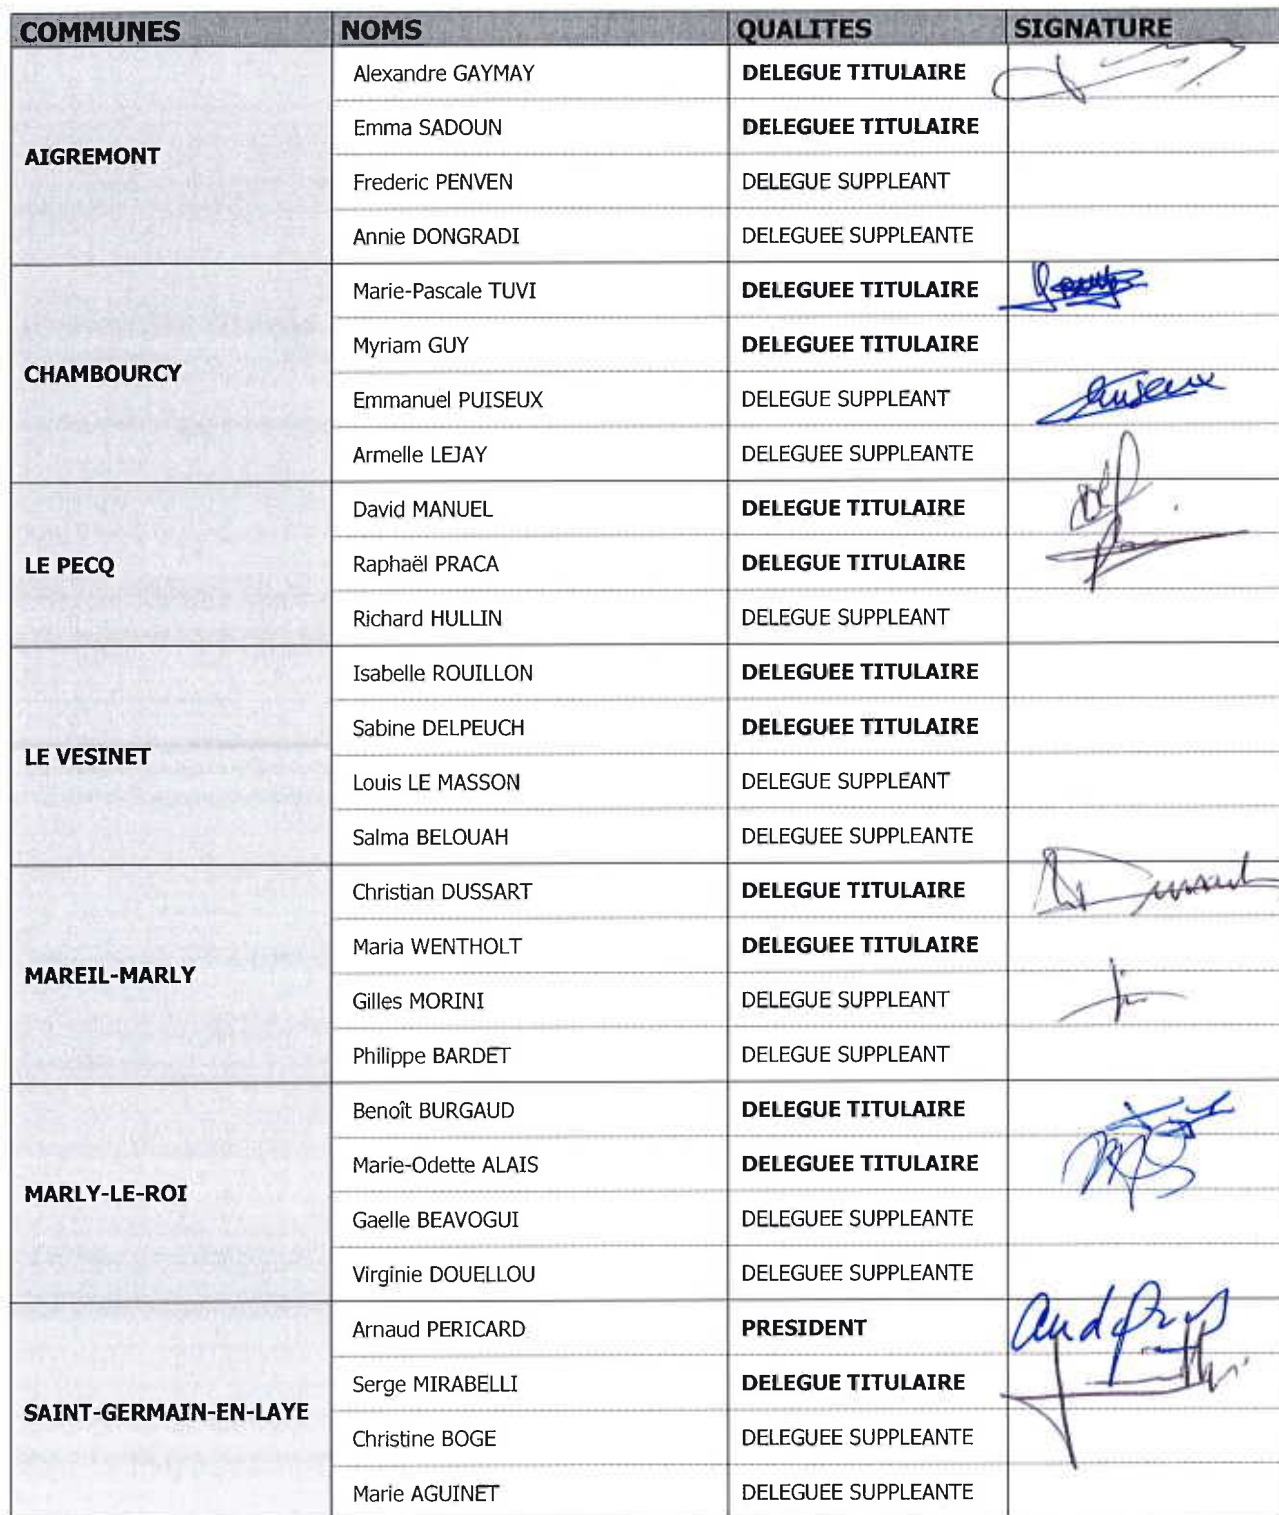 COMMUNES NOMS QUALITES SIGNATURE
Alexandre GAYMAY DELEGUE TITULAIRE
Emma SADOUN DELEGUEE TITULAIRE
AIGREMONT
Frederic PENVEN DELEGUE SUPPLEANT
Annie DONGRADI DELEGUEE SUPPLEANTE
Marie-Pascale TUVI DELEGUEE TITULAIRE
Myriam GUY DELEGUEE TITULAIRE
CHAMBOURCY
Emmanuel PUISEUX DELEGUE SUPPLEANT
Armelle LEJAY DELEGUEE SUPPLEANTE
David MANUEL DELEGUE TITULAIRE
LE PECQ Raphaël PRACA DELEGUE TITULAIRE
Richard HULLIN DELEGUE SUPPLEANT
Isabelle ROUILLON DELEGUEE TITULAIRE
Sabine DELPEUCH DELEGUEE TITULAIRE
LE VESINET
Louis LE MASSON DELEGUE SUPPLEANT
Salma BELOUAH DELEGUEE SUPPLEANTE
Christian DUSSART DELEGUE TITULAIRE
Maria WENTHOLT DELEGUEE TITULAIRE
MAREIL-MARLY
Gilles MORINI DELEGUE SUPPLEANT
Philippe BARDET DELEGUE SUPPLEANT
Benoît BURGAUD DELEGUE TITULAIRE
Marie-Odette ALAIS DELEGUEE TITULAIRE
MARLY-LE-ROI
Gaelle BEAVOGUI DELEGUEE SUPPLEANTE
Virginie DOUELLOU DELEGUEE SUPPLEANTE
Arnaud PERICARD PRESIDENT
Serge MIRABELLI DELEGUE TITULAIRE
SAINT-GERMAIN-EN-LAYE
Christine BOGE DELEGUEE SUPPLEANTE
Marie AGUINET DELEGUEE SUPPLEANTE